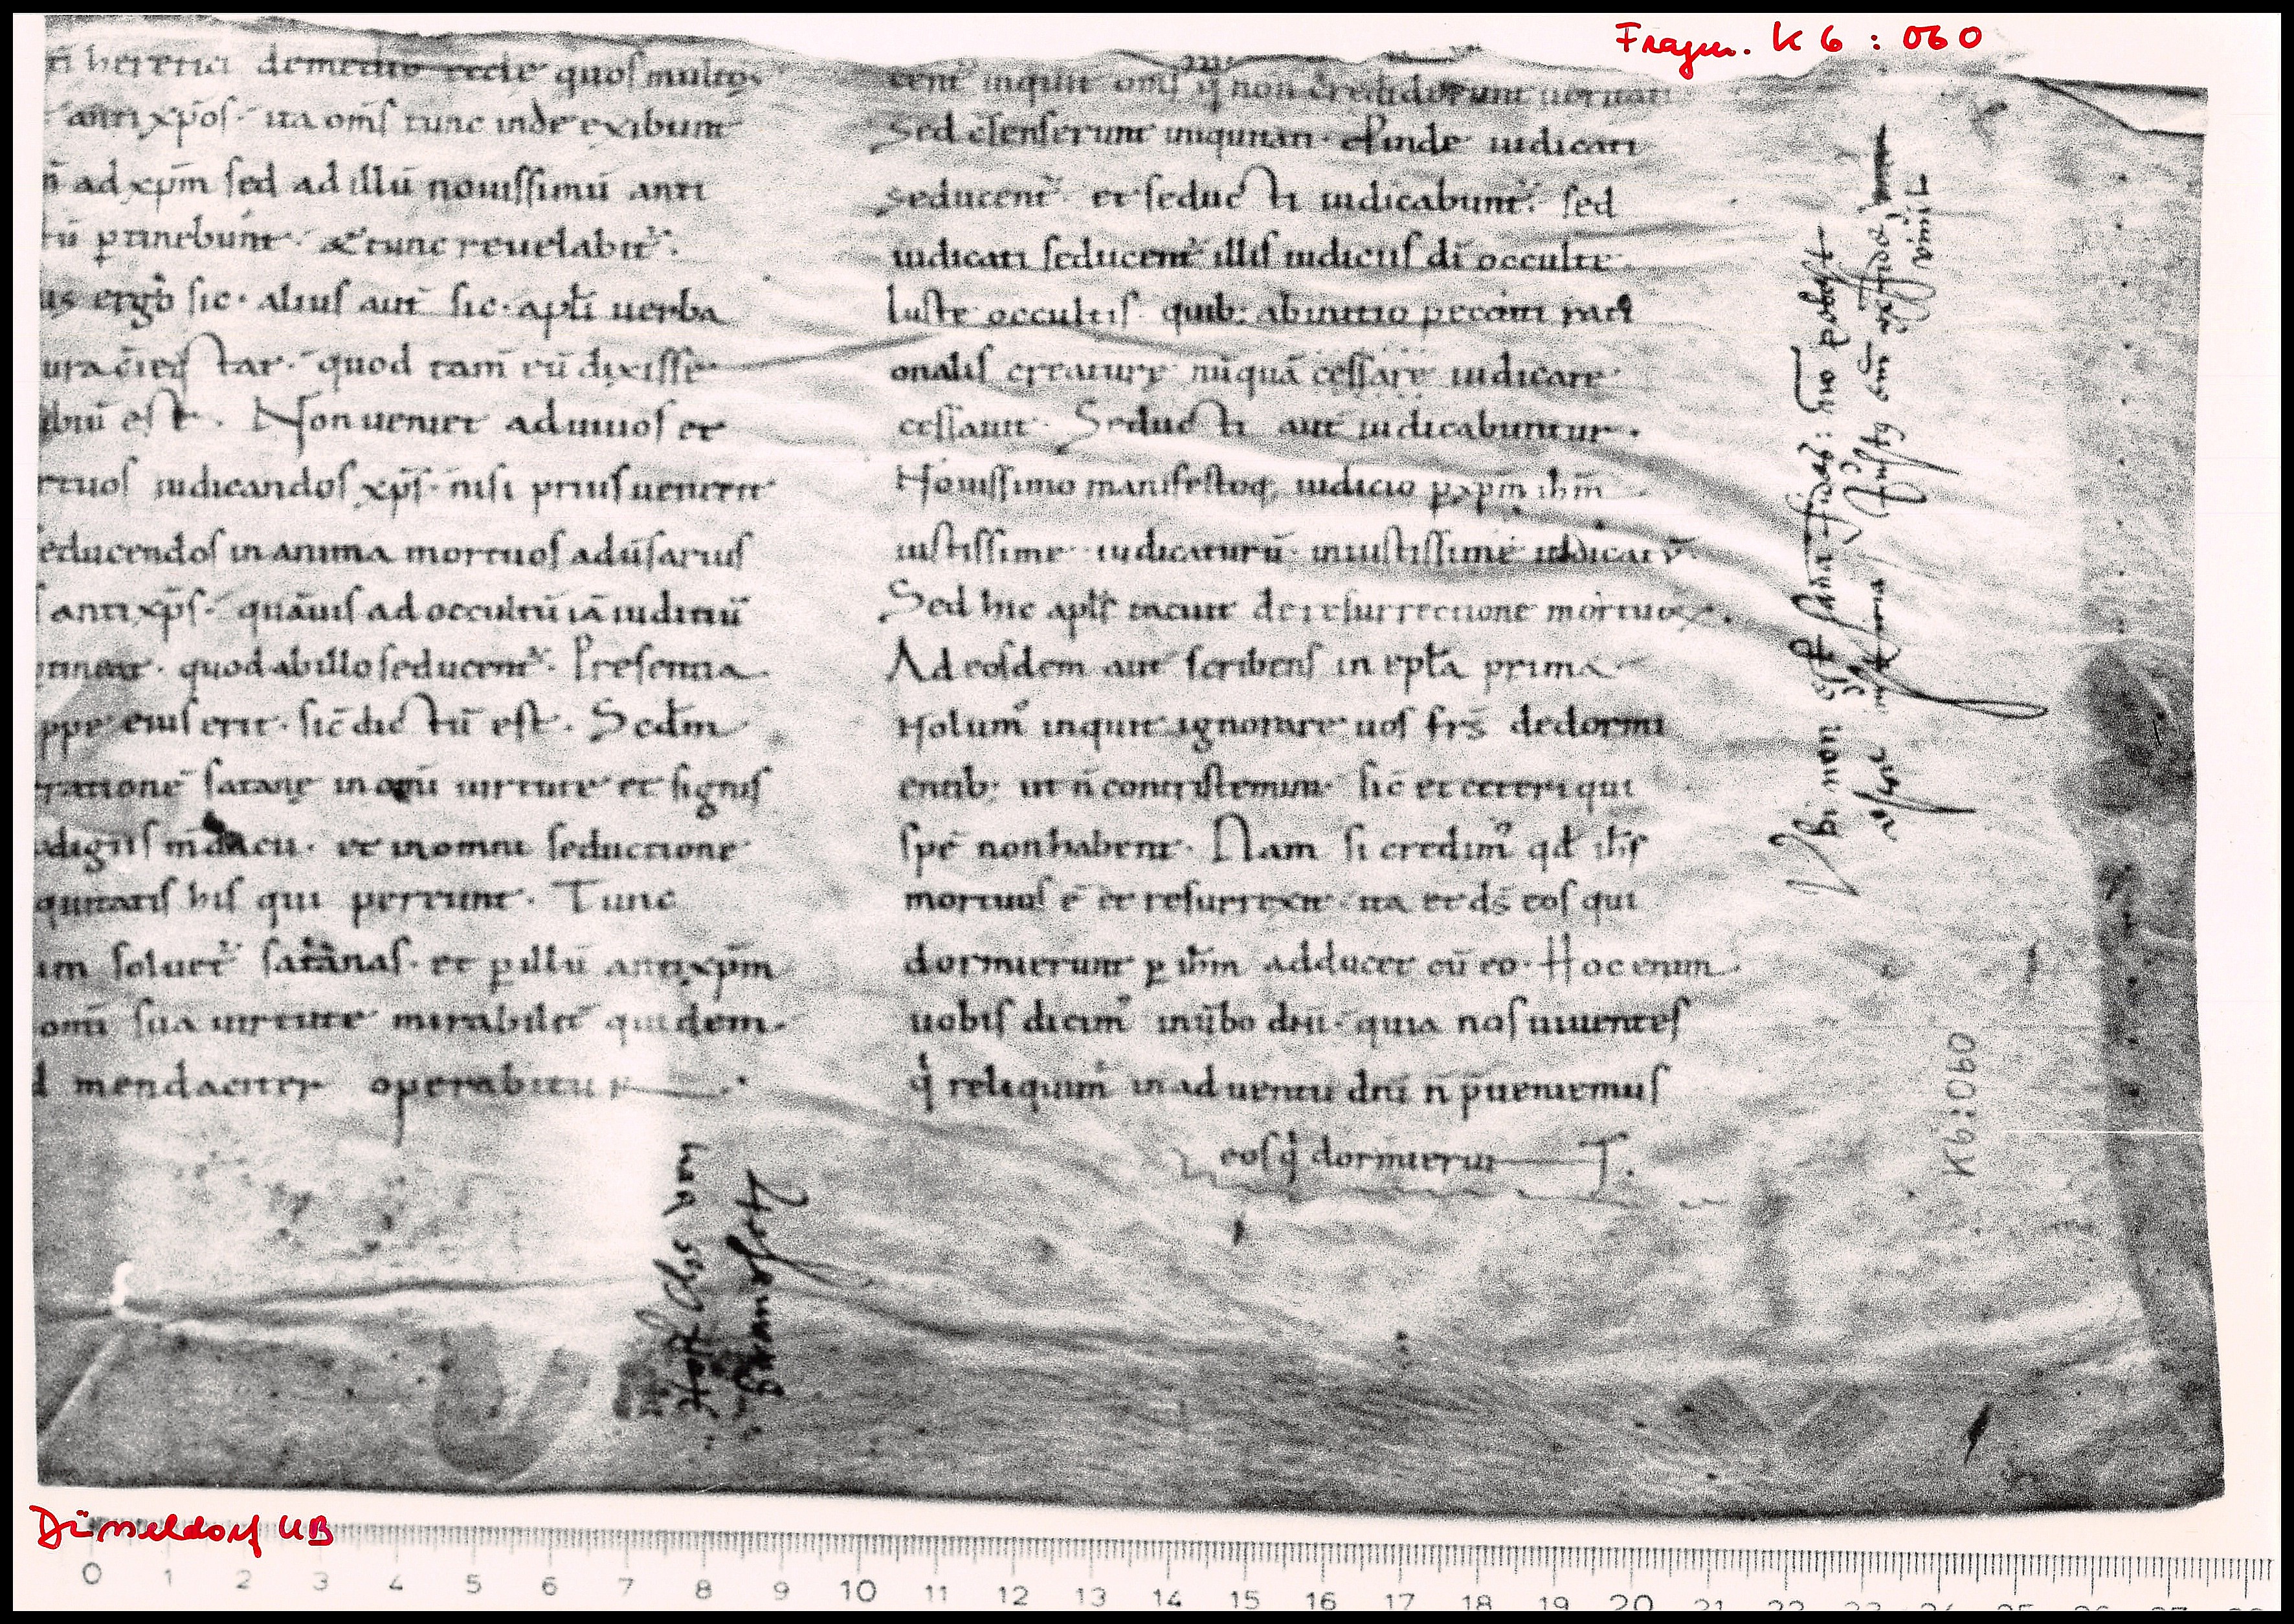 Fragm. K 6 : 060
heretici demedio ecclę quos multos
antixp̄os· ita om̄s tunc inde exibunt
n̄ ad xp̄m sed ad illū nouissimū anti
ptinebunt· & tunc reuelabit᷑·
us ergo sic· alius aut̄ sic· apłi uerba
quod tam̄ eū dixisse
est. Non ueniet ad uiuos et
rtuos iudicandos xp̄s· nisi prius uenerit
educendos in anima mortuos adūsarius
antixp̄s· quāuis ad occultū iā iudiciū
quod ab illo seducent᷑· Presentia
ppe eius erit· sic̄ dictū est. Scd̄m
ratione satanę in om̄i uirtute et signis
digiis mdacii· et in omni seductione
quitatis his qui pereunt· Tunc
im soluet᷑ satanas· et p illū antixp̄m
om̄i sua uirtute mirabilit̄ quidem·
d mendaciter operabitur
cent᷑ inquit om̄s q̇ non crediderunt ueritati
Sed c̄senserunt iniquitati· Pinde iudicati
seducent᷑· et seducti iudicabunt᷑· sed
iudicati seducent᷑ illis iudiciis dī occulte
Iuste occultis· quib; ab initio peccati rati
onalis creaturę nūquā cessare iudicare
cessauit· Seducti aut̄ iudicabuntur·
Nouissimo manifestoq; iudicio p xp̄m ih̄m
iustissime iudicaturū· iniustissime iudicatū·
Sed hic apłs tacuit de resurrectione mortuoꝝ·
Ad eosdem aut̄ scribens in epłа prima
Nolum᾽ inquit ignorare uos frs̄ de dormi
entib; ut n̄ contristemini· sic̄ et ceteri qui
spē non habent· Nam si credim᾽ qđ ih̄s
mortuus ē et resurrexit· ita et ds̄ eos qui
dormierunt p ih̄m adducet cū eo· Hoc enim
uobis dicim᾽ in ūbo dn̄i· quia nos uiuentes
q̇ reliquim᾽ in aduentu dn̄i n̄ p̄ueniemus
eos q̇ dormierūt
Vbi non est sana fides: non potest
K6:060
Düsseldorf UB
0 1 2 3 4 5 6 7 8 9 10 11 12 13 14 15 16 17 18 19 20 21 22 23